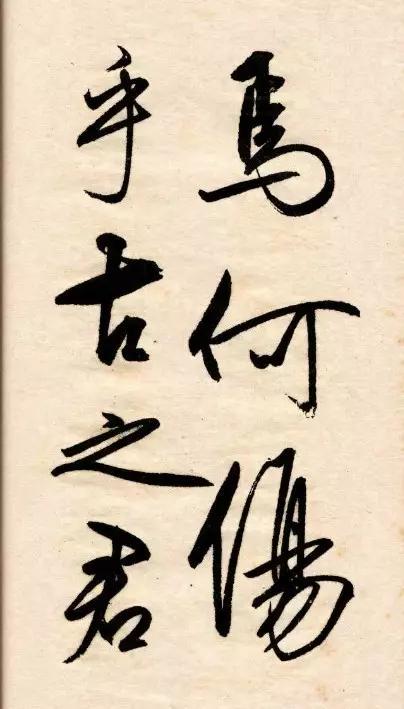 焉何傷
乎古之君